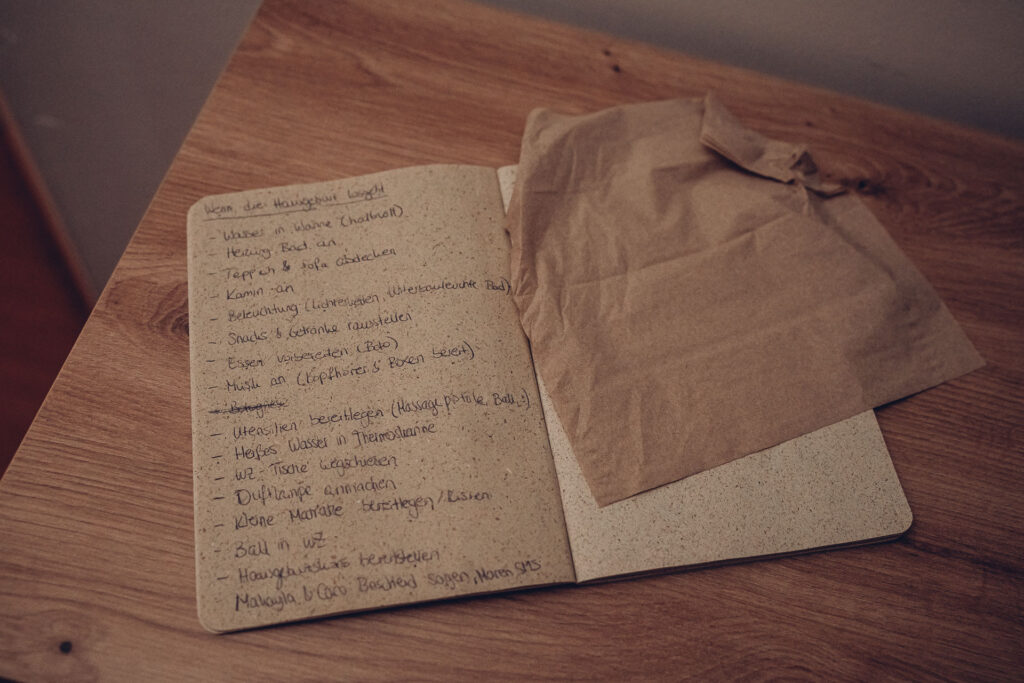 Wenn die Hausgeburt losgeht
- Wasser in Wanne (halbvoll)
- Heizung Bad an
- Teppich & Sofa abdecken
- Kamin an
- Beleuchtung (Lichterketten, Unterbauleuchte Bad)
- Snacks & Getränke rausstellen
- Essen vorbereiten
- Musik an (Kopfhörer & Boxen bereit)
- Utensilien bereitlegen (Massageöle, Ball,
- Heißes Wasser in Thermoskanne
- WZ Tische wegschieben
- Duftlampe anmachen
- Kleine Matratze bereitlegen/Kissen
- Ball in WZ
- Hausgeburtskiste bereitstellen
- & Caro Bescheid sagen, Maren SMS